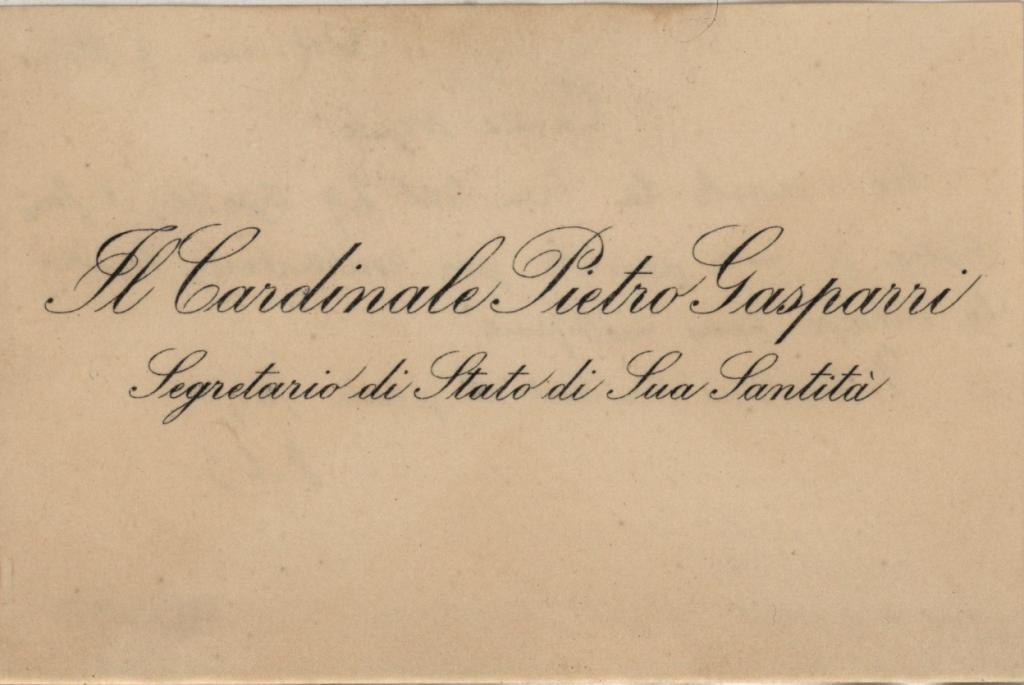 Il Cardinale Pietro Gasparri
Segretario di Stato di Sua Santità